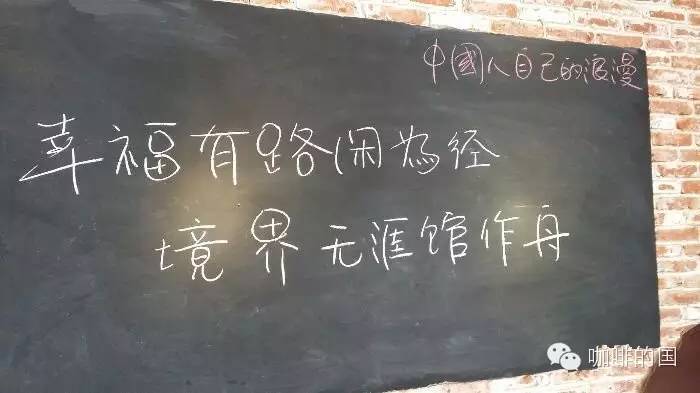 中國人自己的浪漫
幸福有路闲为经
境界无涯馆作舟
咖啡的国